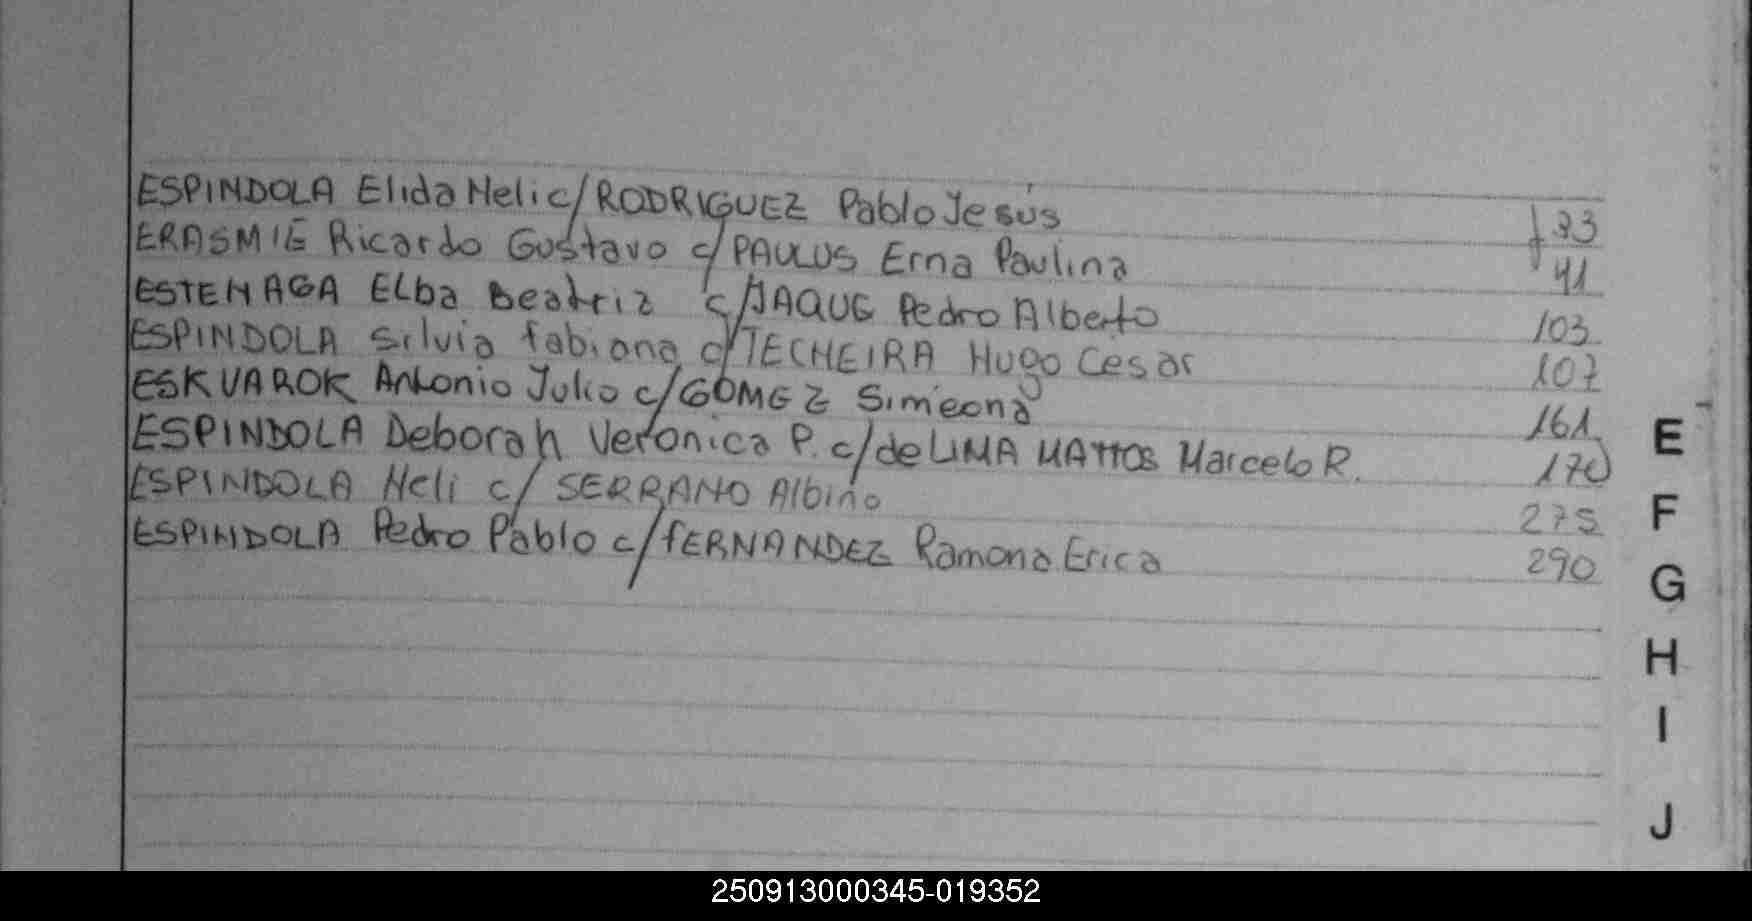 ESPINDOLA Elida Neli c/RODRIGUEZ Pablo Jesús 33
ERASMIE Ricardo Gustavo c/PAULUS Erna Paulina 41
ESTENAGA Elba Beatriz c/JAQUE Pedro Alberto 103
ESPINDOLA Silvia fabiana c/TECHEIRA Hugo Cesar 107
ESKUAROK Antonio Julio c/GOMEZ Simeona 161
ESPINDOLA Deborah Veronica P. c/de LIMA MATTOS Marcelo R. 170
ESPINDOLA Neli c/ SERRANO Albino 275
ESPINDOLA Pedro Pablo c/fERNANDEZ Ramona Erica 290
E
F
G
H
I
J
250913000345-019352